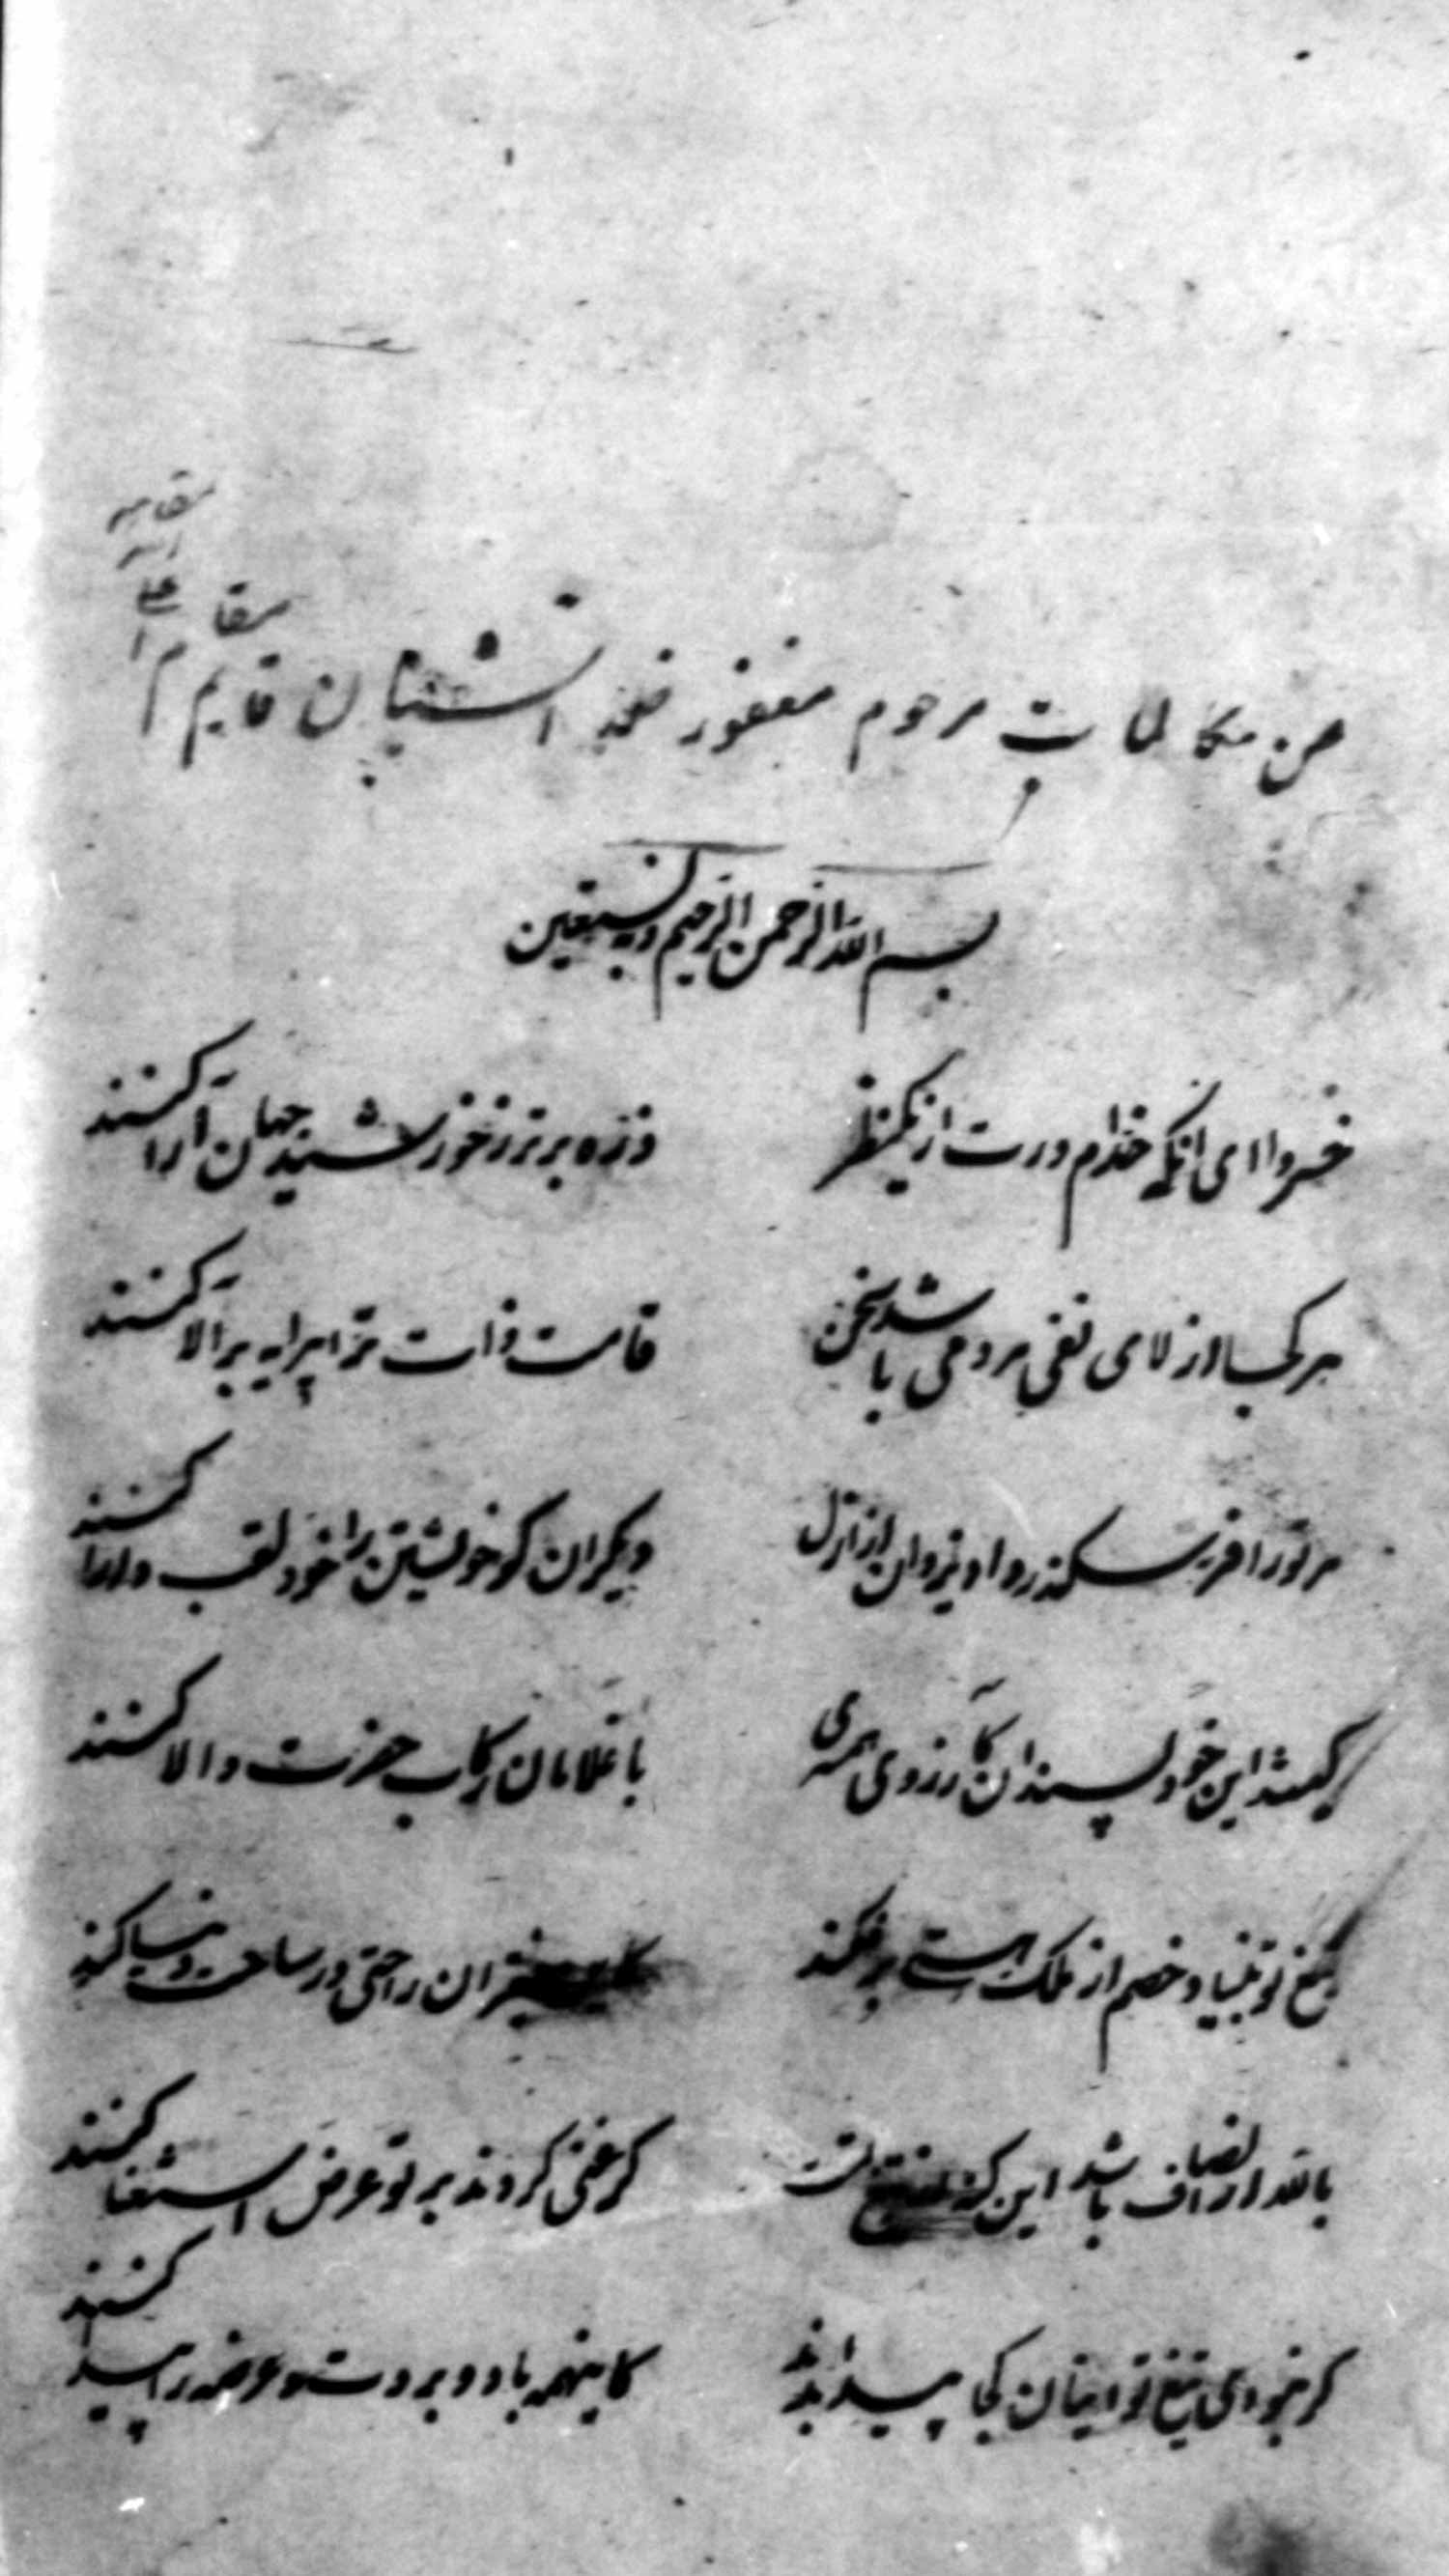 من مکالمات مرحوم مغفور خلد آشیان قایم مقام اعلی الله مقامه
بسم الله الرحمن الرحیم وبه نستعین
خسروا ای انکه خدام درت از یکنظر ذره برتر ز خورشید جهان آرا کنند
هر کجا از لای نفی مردمی باشد سخن قامت ذات ترا پیرایه بر الا کنند
مر تو را فر سکندر داد یزدان از ازل دیکران کو خویشتن را خود لقب دارا کنند
کیستند این خود پسندان کآرزوی همسری با غلامان رکاب حضرت والا کنند
تیغ تو بنیاد خصم از ملک هستی بر فکند را حتی در ساحت دنیا کنند
بالله ار انصاف باشد این کز تیغ تست کر غنی کردند بر تو عرض استغنا کنند
کر نبودی تیغ تو اینان کجا پیدا بدند کاینهمه باد و بروت و عرضه را پیدا کنند